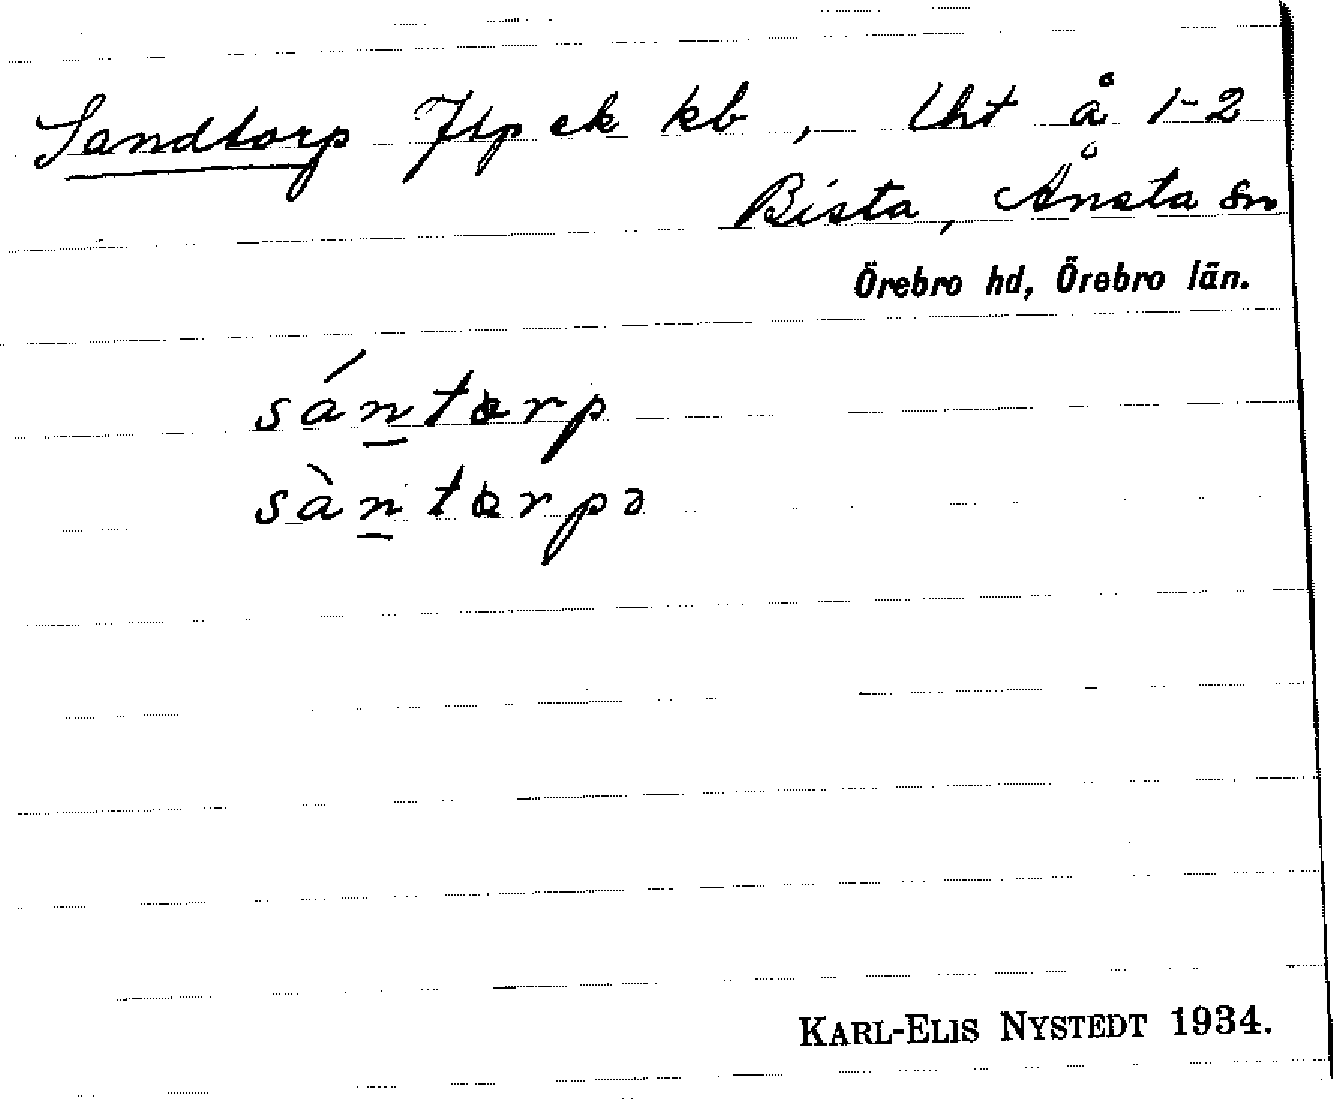 Sandtorp Jtp ek kb, Lht å 1-2
Bista, Ånsta sn
Örebro hd, Örebro län.
sántorp
sàntorpə
KARL-ELIS NYSTEDT 1934.